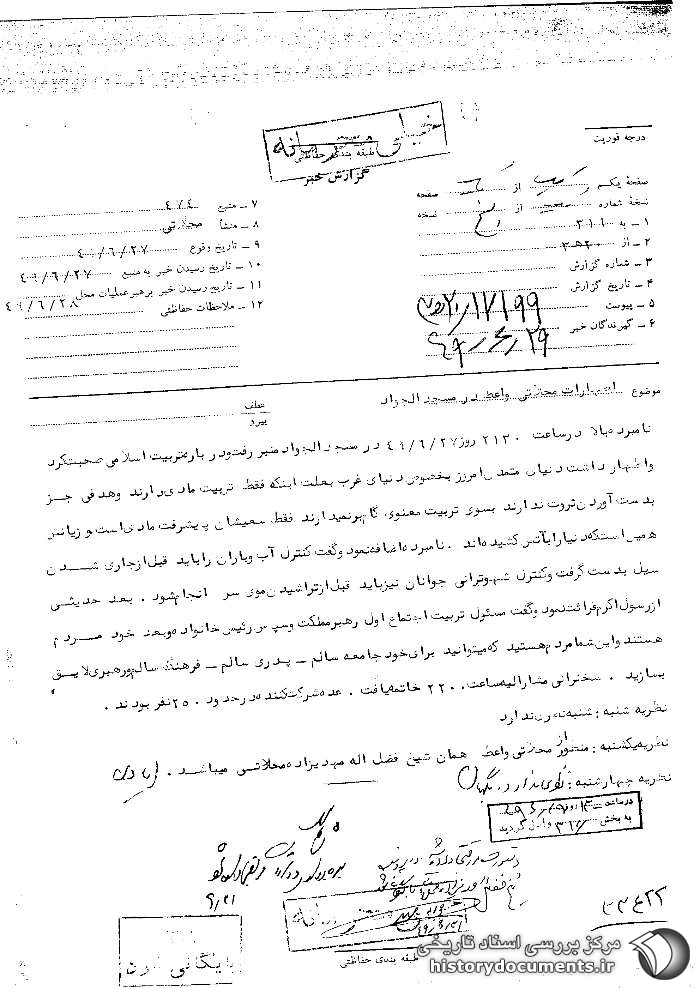 خیلی محرمانه
طبقه بندی حفاظتی
گزارش خبر
درجه فوریت
صفحه یکم از یک صفحه
نسخه شماره از نسخه
۱ ـ به ۳۱۱
۲ ـ از ۲۰ه۳
۳ ـ شماره گزارش
۴ ـ تاریخ گزارش
۵ ـ پیوست
۶ ـ گیرندگان خبر
۲۰/۱۲۱۹۹
۴۹/۶/۲۹
۷ ـ منبع ۴۷۴
۸ ـ منشأ محلاتی
۹ ـ تاریخ وقوع ۴۹/۶/۲۷
۱۰ ـ تاریخ رسیدن خبر به منبع ۴۹/۶/۲۷
۱۱ ـ تاریخ رسیدن خبر برهبر عملیات محل ۴۹/۶/۲۸
۱۲ ـ ملاحظات حفاظتی
موضوع اظهارات محلاتی واعظ در مسجد الجواد
عطف
پیرو
نامبرده بالا در ساعت ۲۱۳۰ روز ۴۹/۶/۲۷ در مسجد الجواد منبر رفت و در باره تربیت اسلامی صحبت کرد
و اظهار داشت دنیای متمدن امروز بخصوص دنیای غرب بعلت اینکه فقط تربیت مادی دارند و هدفی جز
بدست آوردن ثروت ندارند بسوی تربیت معنوی گام برنمیدارند فقط سعیشان پیشرفت مادی است و زیانبر
همین است که دنیا را بآتش کشیده اند . نامبرده اضافه نمود و گفت کنترل آب و باران را باید قبل از جاری شدن
سیل بدست گرفت و کنترل شهوترانی جوانان نیز باید قبل از تراشیدن موی سر انجام شود . بعد حدیثی
از رسول اکرم قرائت نمود و گفت مسئول تربیت اجتماع اول رهبر مملکت و سپس رئیس خانواده و بعد خود مردم
هستند و این شما مردم هستید که میتوانید برای خود جامعه سالم ـ پدری سالم ـ فرهنگ سالم و رهبری لایق
بسازید . سخنرانی مشارالیه ساعت ۲۲۰۰ خاتمه یافت . عده شرکت کننده در حدود ۲۵۰ نفر بودند .
نظریه شنبه : شنبه نظری ندارد
نظریه یکشنبه : منظور از محلاتی واعظ همان شیخ فضل اله مهدیزاده محلاتی میباشد .
نظریه چهارشنبه : نظری ندارد . نگهبان
در ساعت روز
به بخش ۳۱۲ واصل گردید
۹/۳۱
۳۳۶۲۲
طبقه بندی حفاظتی
بایگانی
مرکز بررسی اسناد تاریخی
historydocuments.ir